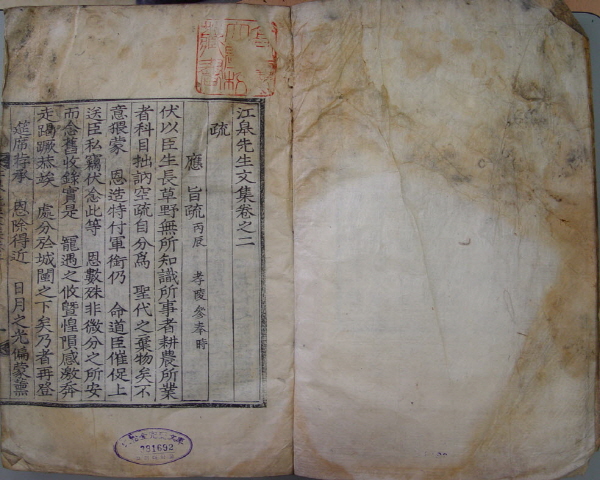 江皐先生文集卷之二
疏
應 旨疏 丙辰 孝陵參奉時
伏以臣生長草野無所知識所事者耕農所業
者科目拙訥空疏自分爲 聖代之棄物矣不
意猥蒙 恩造特付軍銜仍 命道臣催促上
送臣私竊伏念此等 恩數殊非微分之所安
而念舊收錄實是 寵遇之攸曁惶隕感激奔
走竭蹶恭竢 處分於城闉之下矣乃者再登
筵席特承 恩除得近 日月之光偏蒙
291692